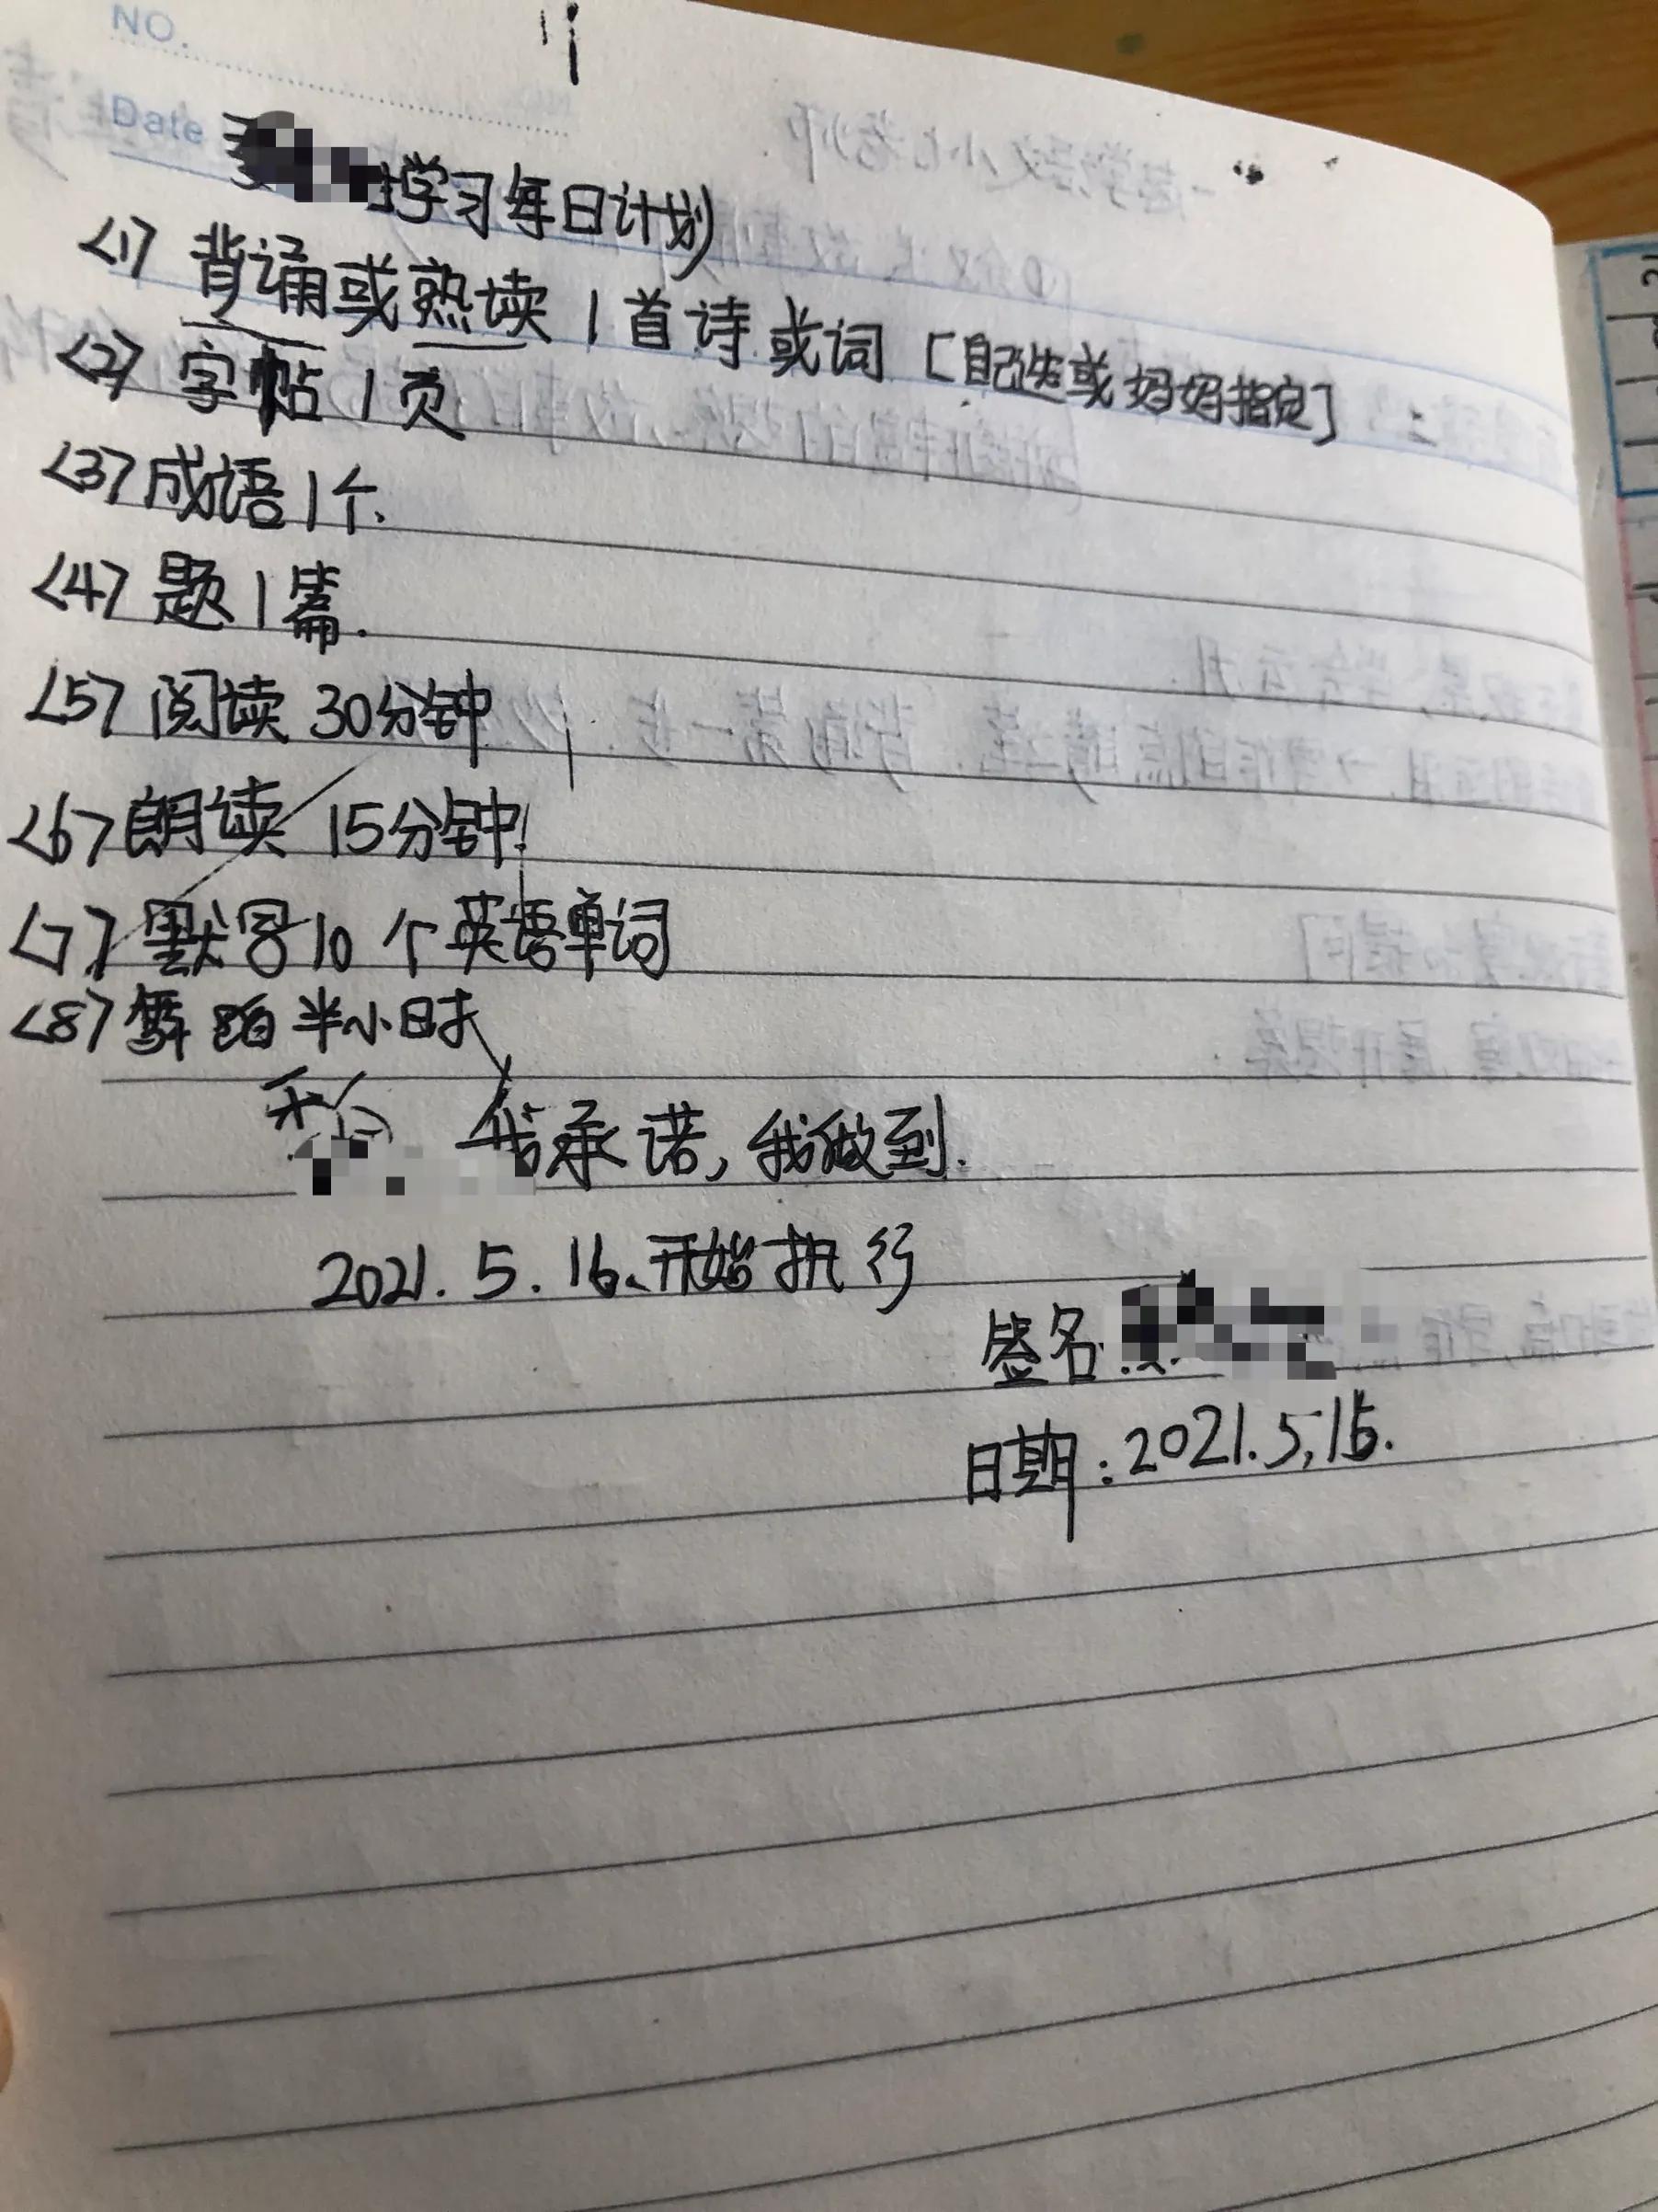 NO.
Date
学习每日计划
<1> 背诵或熟读1首诗或词[自己选或妈妈指定]
<2> 字帖1页
<3> 成语1个.
<4> 题1篇.
<5> 阅读 30分钟
<6> 朗读 15分钟
<7> 默写10个英语单词
<8> 舞蹈半小时
我承诺,我做到.
2021.5.16.开始执行
签名:
日期:2021.5.15.